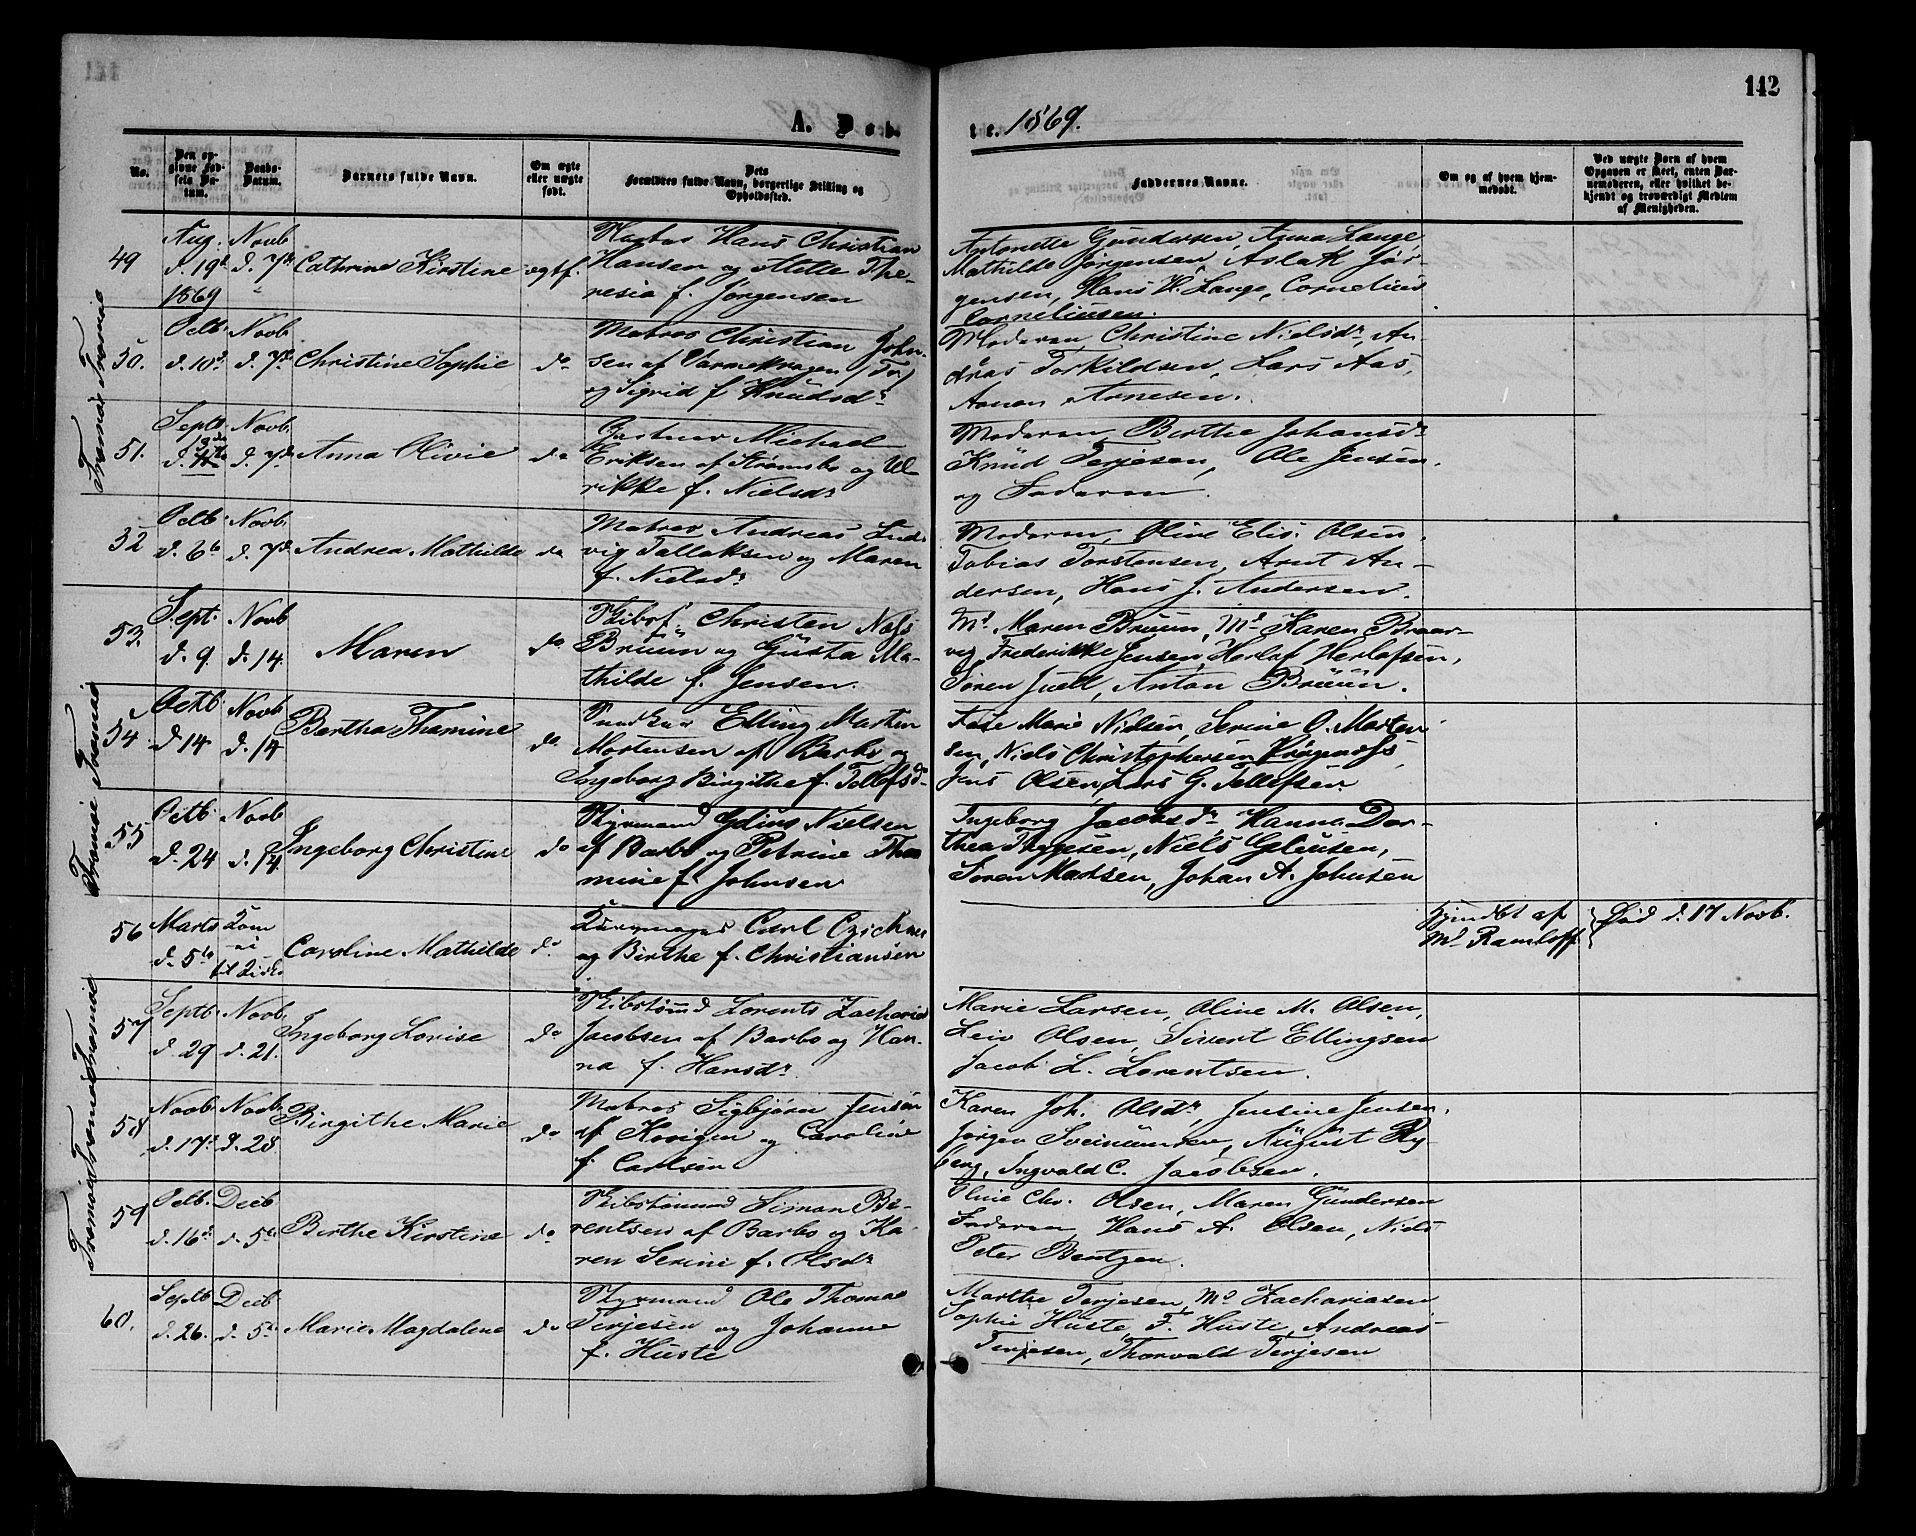 142
A. Døb- te. 1869.
No.
Den op-
givne Fød-
sels Da-
tum.
Daabs-
Datum.
Barnets fulde Navn.
Om ægte
eller uægte
født.
Dets
Forældres fulde Navn, borgerlige Stilling og
Opholdssted.
Faddernes Navne.
Om og af hvem hjem-
medøbt.
Ved uægte Børn af hvem
Opgaven er skeet, enten Bar-
nemoderen, eller hvilket be-
kjendt og troværdigt Medlem
af Menigheden.
49
Aug.
d. 19d
1869
Novb
d. 7d
Cathrine Kirstine
egtf.
Hans Christian
Hansen og Mette The-
resia f. Jørgensen
Antonette Gundersen, Anna Lange,
Mathilde Jørgensen, Aslak Jør-
gensen, Hans H. Lange, Cornelius
Corneliusen.
50.
Octb.
d. 10d
Novb.
d. 7d
Christine Sophie
do
Matros Christian John-
sen af
og Sigrid f. Knudsdr
Moderen Christine Nielsdr, An-
dreas Torkildsen, Lars Aas,
Aanon Arnesen.
51.
Septb
Novb.
d. 7d
Anna Olivie
do
Gartner Michael
Eriksen af Strømsbo og Ul-
rikke f. Nielsdr
Moderen, Birthe Johansdr
Knud Terjesen, Ole Jensen,
og Faderen.
52
Octb.
d. 6te
Novb.
d. 7d
Andrea Mathilde
do
Matros Andreas Lud-
vig Tallaksen og Maren
f. Nielsdr
Moderen, Oline Elis. Olsen,
Tobias Torstensen, Arnt An-
dersen, Hans J. Andersen.
53.
Sept.
d. 9.
Novb
d. 14.
Maren
do
Skibsf. Christen Næss
Bruun og Gusta Ma-
thilde f. Jensen.
Md. Maren Bruun, Md. Karen Braar-
vig, Frederikke Jensen, Herlof Herlofsen,
Søren Juell, Anton Bruun.
54.
Octb.
d. 14
Novb
d. 14
Bertha Thomine
do
Elling Martin
Mortensen af Barbo og
Ingeborg Birgithe f. Tellefsdr
Marie Nielsen, Serine O. Morten-
sen, Niels Christophersen
Jens Olsen, Lars G. Tellefsen
55
Octb.
d. 24
Novb
d. 14.
Ingeborg Christine
do
Styrmand Gelius Nielsen
af Barbo og Petrine Tho-
mine f. Johnsen
Ingeborg Jacobsdr, Hanna Dor-
thea Thygesen, Niels Geliusen,
Søren Madsen, Johan A. Johnsen
56
Marts
d. 5te
Kom
ei
til Kirke
Caroline Mathilde
do.
Carl
og Birthe f. Christiansen
Hjmdbt af
Md Ramloff
Død d. 17 Novb.
57
Septb.
d. 29
Novb.
d. 21.
Ingeborg Lovise
do
Skibstømd Lorents Zacharias
Jacobsen af Barbo og Han-
na f. Hansdr
Marie Larsen, Oline M. Olsen,
Olsen, Sivert Ellingsen
Jacob L. Lorentsen.
58
Novb.
d. 17d
Novb.
d. 28
Birgithe Marie
do
Matros Sigbjørn Jensen
af Kovigen og Caroline
f. Carlsen
Karen Joh. Olsdr, Jensine Jensen,
Jørgen Sveinunsen, August Ry-
berg, Ingvald C. Jacobsen.
59
Octb.
d. 16d
Decb
d. 5te
Birthe Kirstine
do
Skibstømmd Simon Be-
rentsen af Barbo og Ka-
ren Serine f. Olsdr
Oline Chr. Olsen, Maren Gundersen
Faderen, Hans A. Olsen, Niels
Peter Bentzen.
60.
Septb
d. 26.
Decb
d. 5te
Marie Magdalene
do
Styrmand Ole Thomas
Terjesen og Johanne
f. Huste
Marthe Terjesen, Md Zachariasen
Sophie Huste, F. Huste, Andreas
Terjesen, Thorvald Terjesen
Tromøe Tromøe
Tromøe Tromøe
Tromøe Tromøe Tromøe